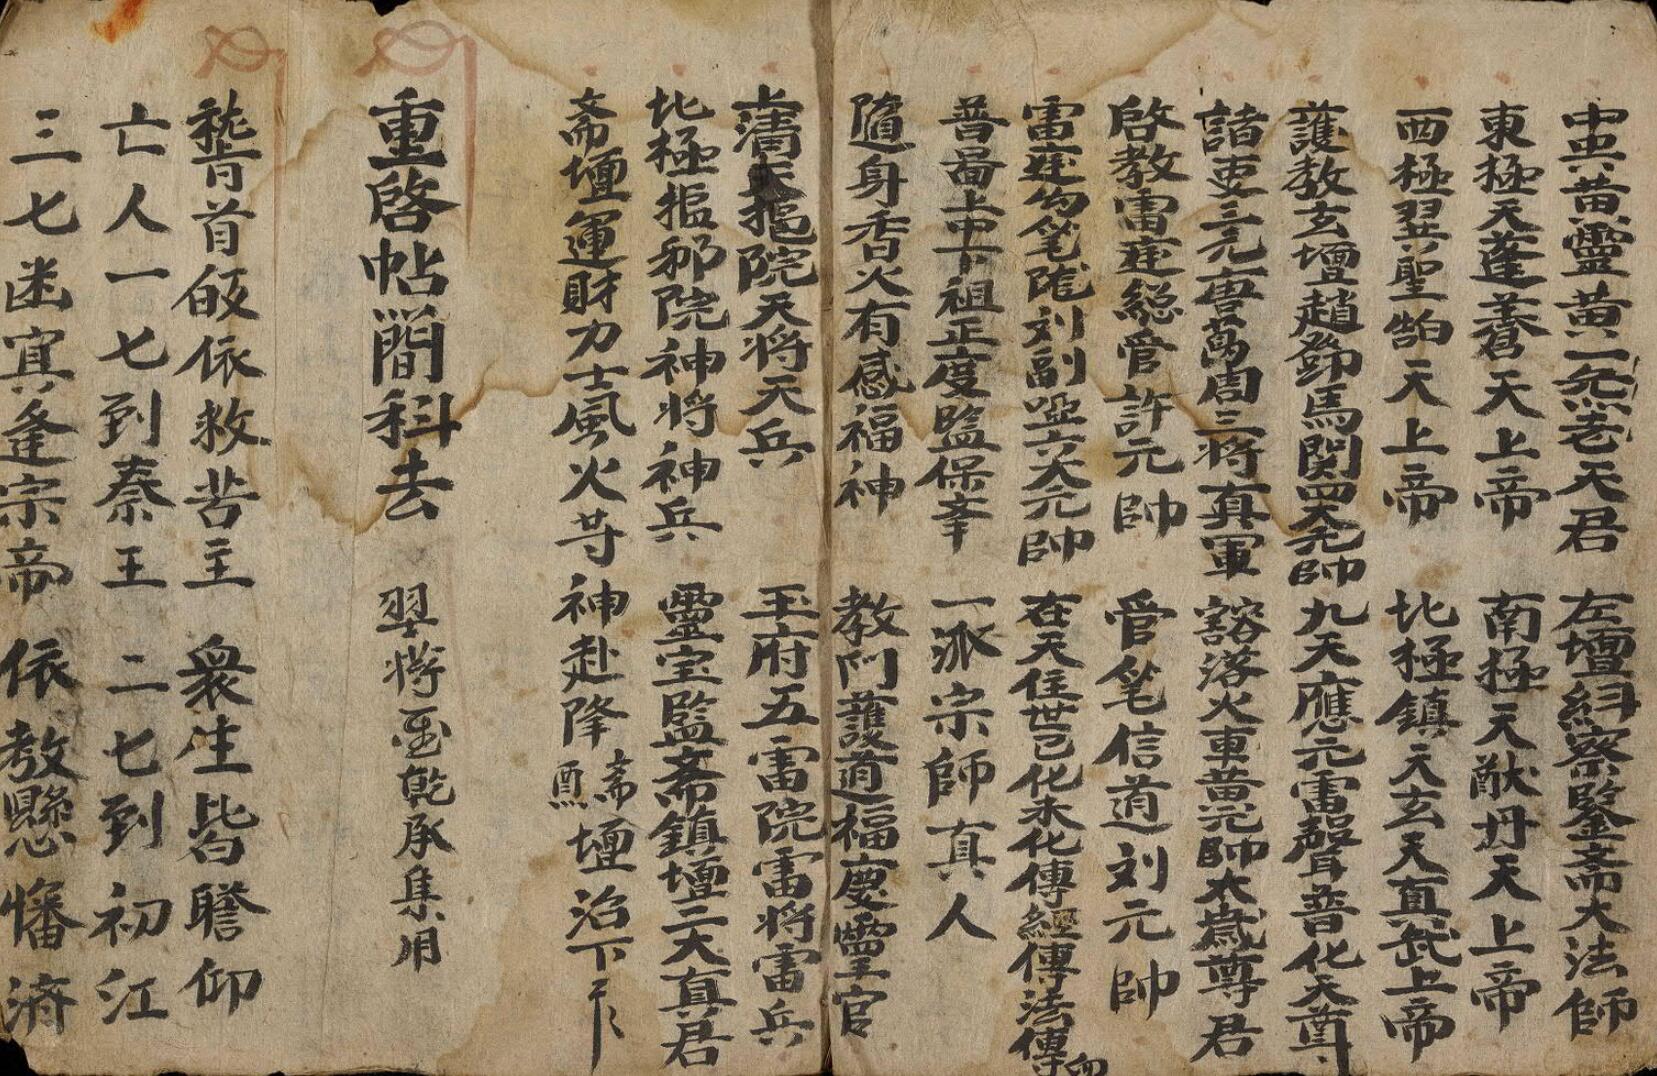 中央黃靈黃一炁老天君　左壇糾察監斋大法師
東極天蓬蒼天上帝　南極天猷丹天上帝
西極翌聖皓天上帝　北極鎮天玄天真武上帝
護教玄壇趙鄧馬関四大元帥　九天應元雷聲普化天尊
諸吏三元唐葛周三將真軍　豁落火車黄元帥太歲尊君
啓教雷霆総管許元帥　管筆信道刘元帥
雷霆勾筆陇刘副啞六大元帥　在天住世已化未化傳經傳法傳
普啚上中下祖正度監保峯　一派宗師真人
隨身香火有感福神　教門護道福慶霊官
上清天樞院天将天兵　玉府五雷院雷将雷兵
北極摳邪院神将神兵　靈宝監斋鎮壇三大真君
斋壇運財力士風火䓁神赴降斋壇治下
重啓帖簡科去　翌将　乾承集用
嵇首皈依救苦主　衆生皆瞻仰
亡人一七到秦王　二七到初江
三七幽冥逢宗帝　依教懸幡済